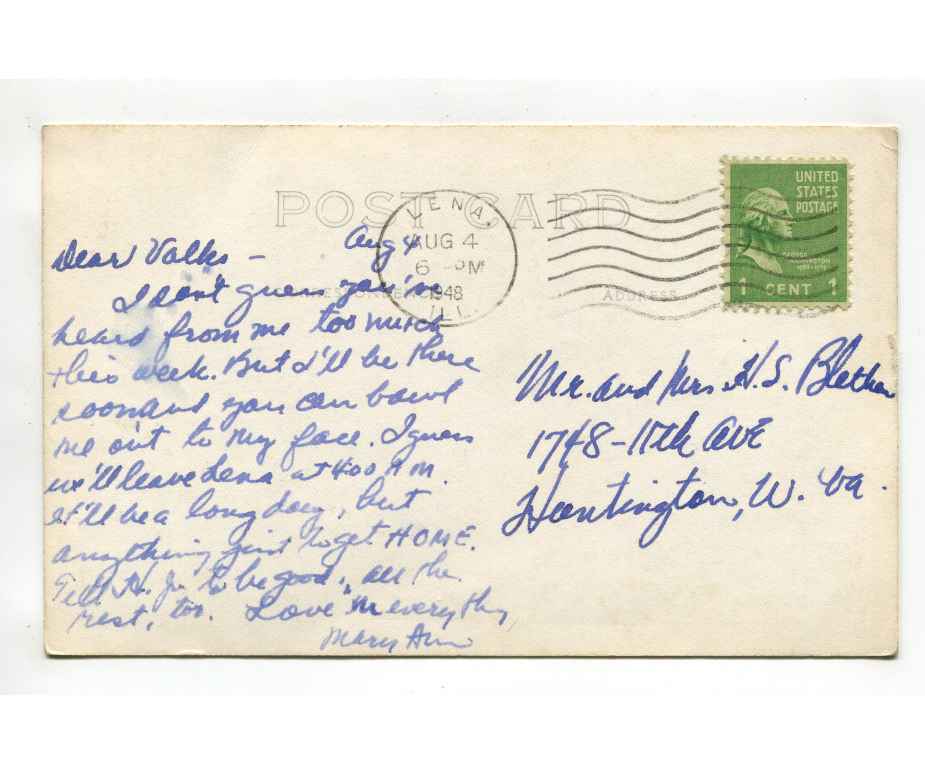 POST CARD
LENA,
AUG 4
6 PM
1948
ILL.
UNITED
STATES
POSTAGE
GEORGE
WASHINGTON
1 CENT 1
CORRESPONDENCE
ADDRESS
Dear Volks – Aug 4
I don't guess you've
heard from me too much
this week. But I'll be there
soon and you can bawl
me out to my face. I guess
we'll leave Lena at 4:00 A.M.
It'll be a long day, but
anything just to get HOME.
Tell H. Jr. to be good, all the
rest, too. Love 'n everything,
Mary Ann
Mr. and Mrs. H. S.
1748 – 11th AVE
Huntington, W. Va.